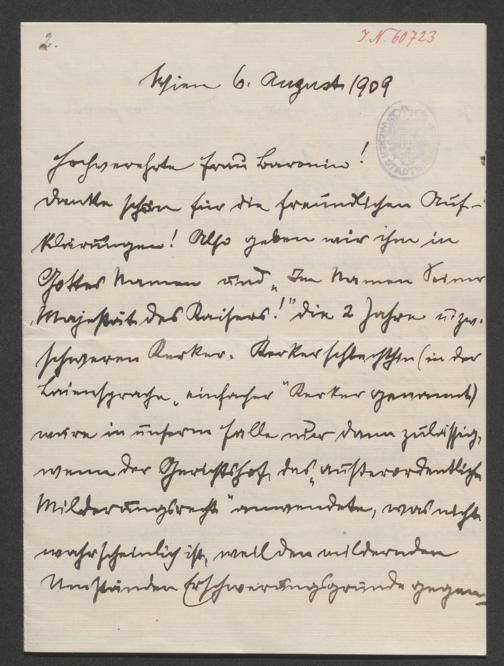 2.
I.N. 60723
Wien 6. August 1909
Hochverehrte Frau Baronin!
Danke schön für die freundlichen Auf-
klärungen! Also geben wir ihm in
Gottes Namen und „Im Namen Seiner
Majestät des Kaisers!" die 2 Jahre u. zw.
schweren Kerker. Kerker schlechthin (in der
Laiensprache „einfacher" Kerker genannt)
wäre in unserm Falle nur dann zulässig,
wenn der Gerichtshof das „außerordentliche
Milderungsrecht" anwendete, was nicht
wahrscheinlich ist, weil den mildernden
Umständen Erschwerungsgründe gegen-